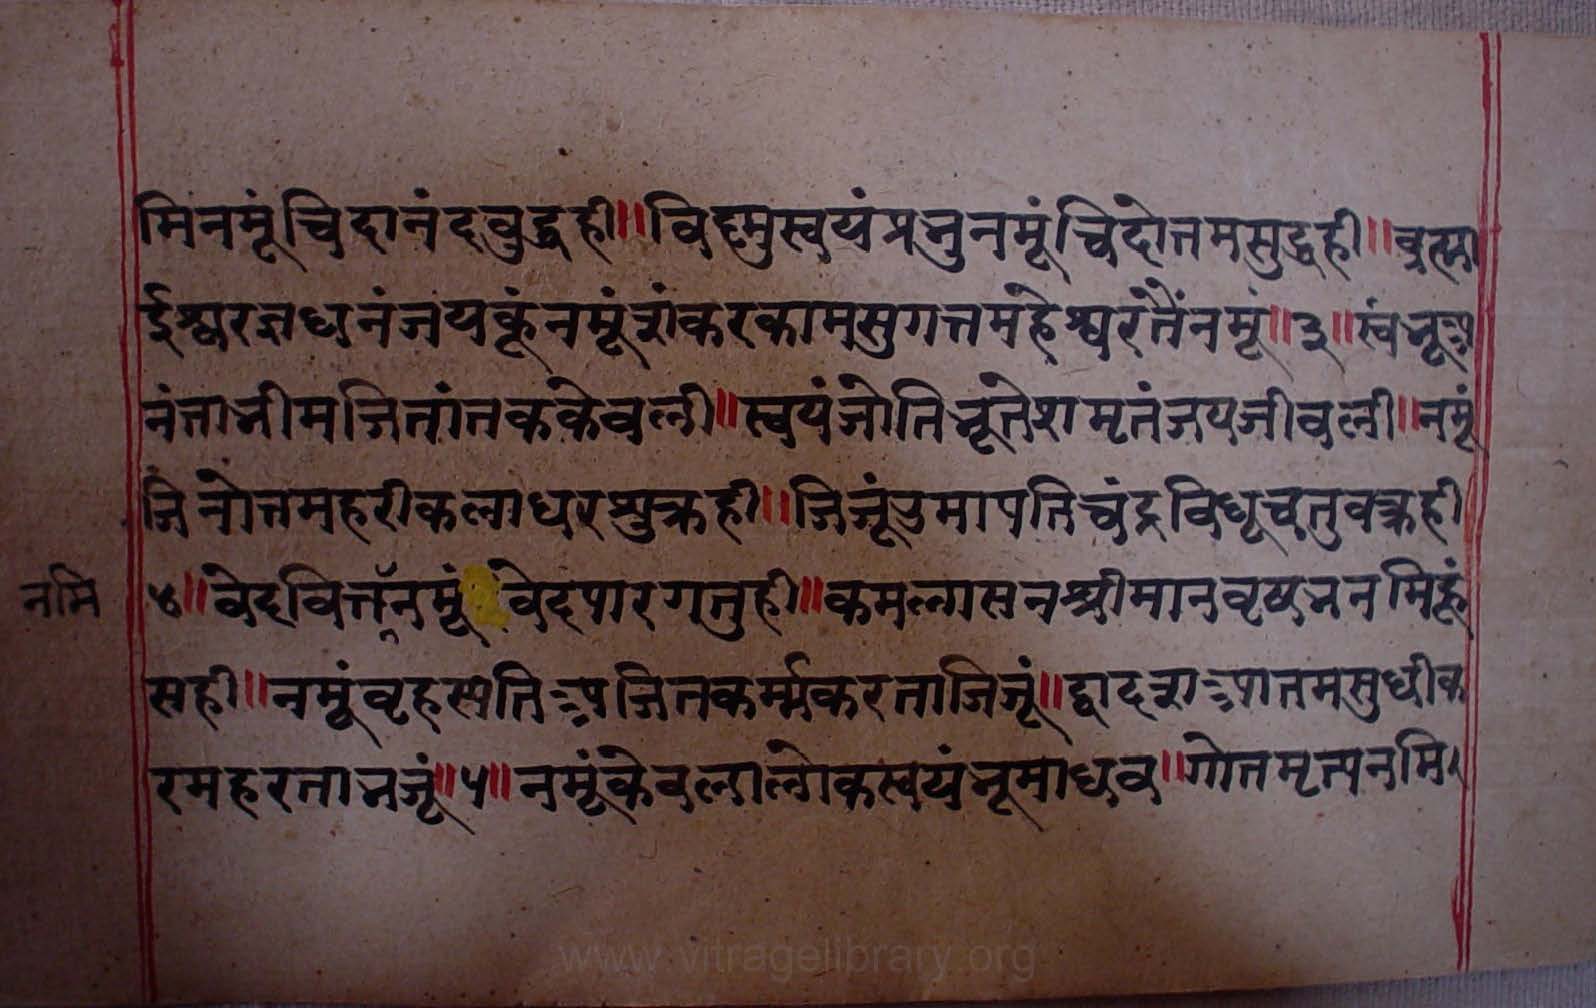 मिनमूं चिदानंदवुद्धही ॥ विद्दमुस्वयंप्रभुनमूं चिदोत्तमसुद्धही ॥ व्रत्मा
ईश्वरज्ञधनंजयकूंनमूं शंकरकामसुगत्तमहेश्वरतैंनमूं ॥ ३ ॥ स्वंभू अ
नंताभीमजितांतककेवली ॥ स्वयंजोतिभूतेशमृतंजयजीवली ॥ नमूं
जिनोत्तमहरीकलाधरशुक्रही ॥ जिजूंउमापतिचंद्रविधूचतुवक्रही
नमि ४ ॥ वेदवित्तनमूं वेदपारगभुही ॥ कमलासनश्रीमानवृषभनमिहूं
सही ॥ नमूंवृहस्पतिअजितकर्म्मकरताजिजूं ॥ द्वादशआतमसुधीक
रमहरताभजूं ॥ ५ ॥ नमूंकेवलालोकस्वयंभूमाधव ॥ गोतमृत्यनमि
www.vitragelibrary.org